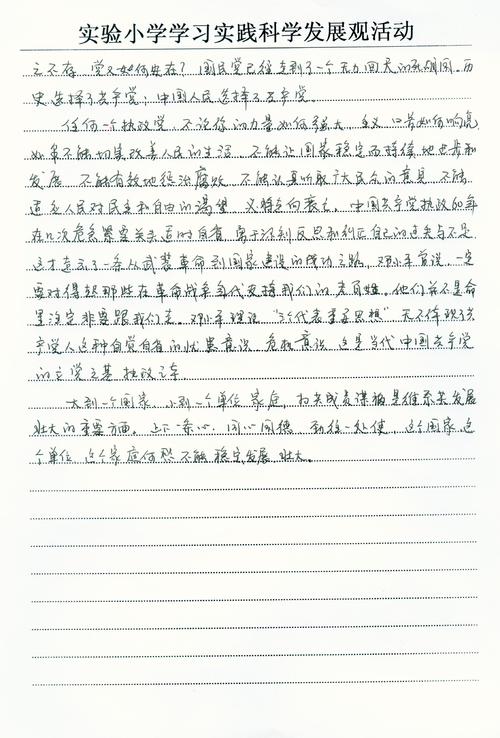 实验小学学习实践科学发展观活动
之不存，党又如何安在？国民党已经走到了一个无力回天的死胡同。历
史选择了共产党；中国人民选择了共产党。
任何一个执政党，不论你的力量如何强大，主义口号如何响亮，
如果不能切实改善人民的生活，不能让国家稳定而持续地进步和
发展，不能有效地惩治腐败，不能认真听取广大民众的意见，不能
适应人民对民主和自由的渴望，必将走向衰亡。中国共产党执政60年
在几次危急紧要关头适时自省，勇于深刻反思和纠正自己的过失与不足
这才走出了一条从武装革命到国家建设的成功之路。邓小平曾说，一定
要对得起那些在革命战争年代支持我们的老百姓。他们并不是命
里注定非要跟我们走。邓小平理论"三个代表重要思想"无不体现了共
产党人这种自觉自省的忧患意识、危机意识，这是当代中国共产党
的立党之基，执政之本。
大到一个国家，小到一个单位、家庭，
壮大的重要方面。上下一条心，同心同德，劲往一处使，这个国家、这
个单位、这个家庭何愁不能稳定、发展、壮大。